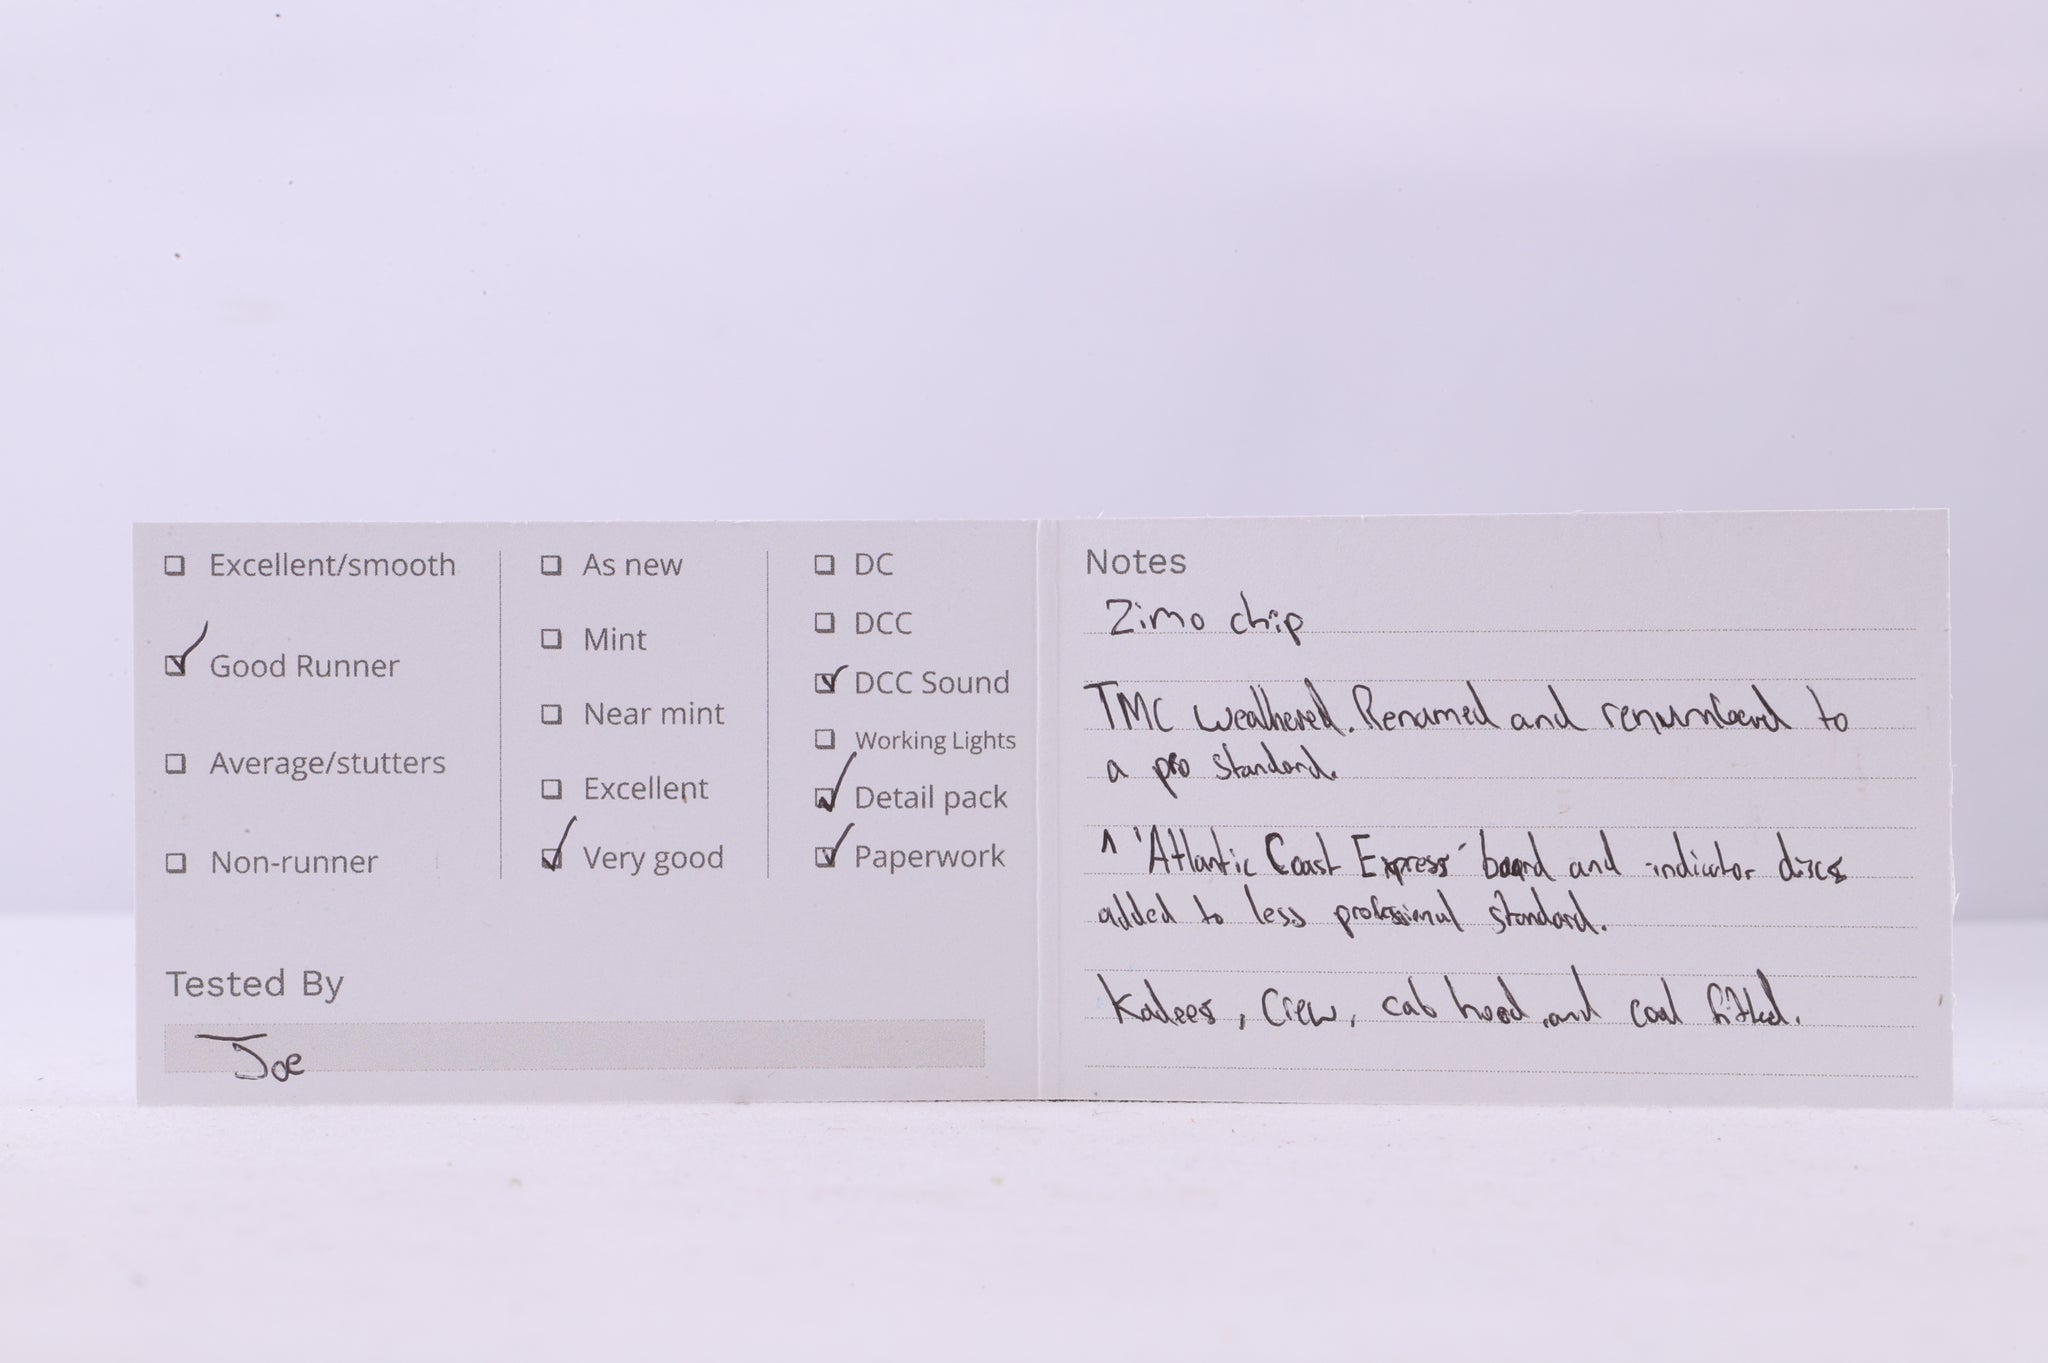 ☐ Excellent/smooth
☑ Good Runner
☐ Average/stutters
☐ Non-runner
☐ As new
☐ Mint
☐ Near mint
☐ Excellent
☑ Very good
☐ DC
☐ DCC
☑ DCC Sound
☐ Working Lights
☑ Detail pack
☑ Paperwork
Tested By
Joe
Notes
Zimo chip
TMC weathered. Renamed and renumbered to
a pro standard.
^ 'Atlantic Coast Express' board and indicator discs
added to less professional standard.
Kadees, Crew, cab hood and coal fitted.